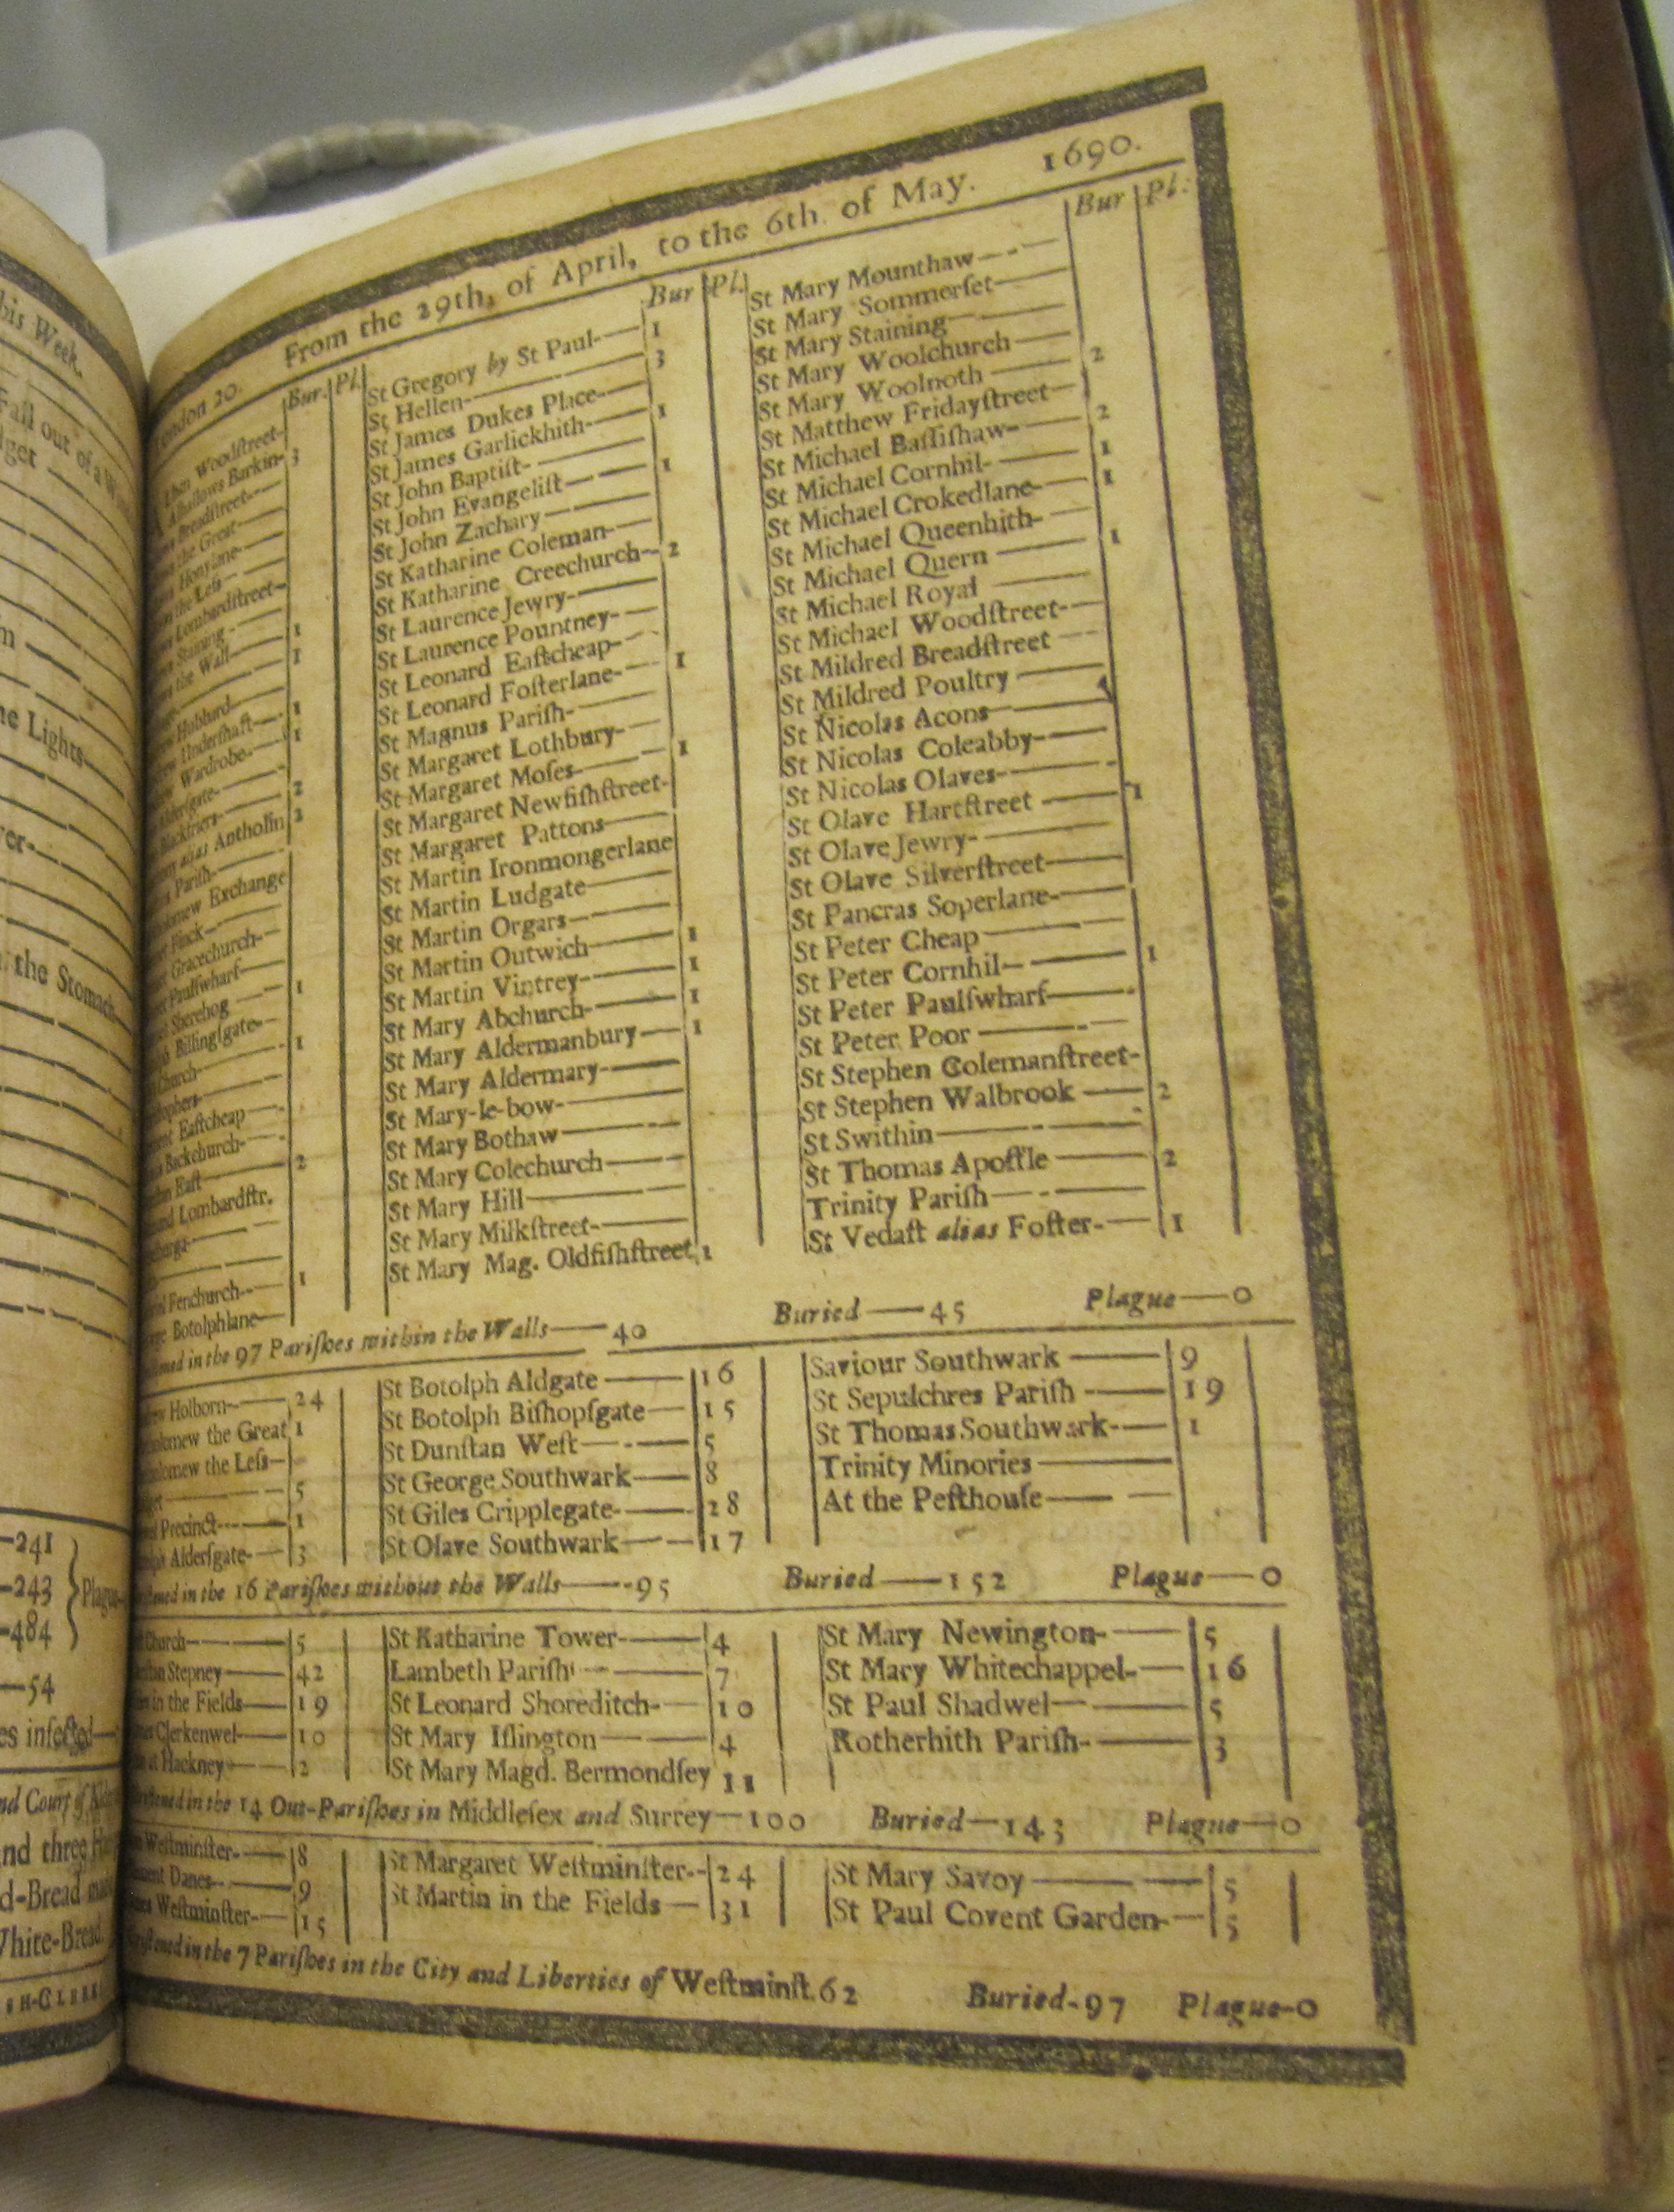 his Week.
Fall out of a
the Lights
the Stomach
241
243
Plague
484
54
and three
d-Bread
White-Bread.
London 20. From the 29th, of April, to the 6th. of May. 1690.
Bur. Pl.
Woodſtreet-
Alhallows Barkin- 3
Breadſtreet
the Great
Honylane
the Leſs
Lombardſtreet
Staining
the Wall 1
1
Hubbard
Underſhaft 1
Wardrobe 1
Alderſgate
Blackfriers 2
alias Antholin 2
Pariſh
Exchange
Finck
Gracechurch
Paulſwharf
Sherehog 1
Billingſgate
Church 1
Eaſtcheap
Backchurch
Eaſt 2
Lombardſtr.
Fenchurch 1
Botolphlane
Bur Pl.
St Gregory by St Paul 1
St Hellen 3
St James Dukes Place
St James Garlickhith 1
St John Baptiſt
St John Evangeliſt 1
St John Zachary
St Katharine Coleman
St Katharine Creechurch 2
St Laurence Jewry
St Laurence Pountney
St Leonard Eaſtcheap
St Leonard Foſterlane 1
St Magnus Pariſh
St Margaret Lothbury
St Margaret Moſes 1
St Margaret Newfiſhſtreet
St Margaret Pattons
St Martin Ironmongerlane
St Martin Ludgate
St Martin Orgars
St Martin Outwich 1
St Martin Vintrey 1
St Mary Abchurch 1
St Mary Aldermanbury 1
St Mary Aldermary
St Mary-le-bow
St Mary Bothaw
St Mary Colechurch
St Mary Hill
St Mary Milkſtreet
St Mary Mag. Oldfiſhſtreet 1
Bur Pl:
St Mary Mounthaw
St Mary Sommerſet
St Mary Staining
St Mary Woolchurch
St Mary Woolnoth 2
St Matthew Fridayſtreet
St Michael Baſſiſhaw 2
St Michael Cornhil 1
St Michael Crokedlane 1
St Michael Queenhith
St Michael Quern 1
St Michael Royal
St Michael Woodſtreet
St Mildred Breadſtreet
St Mildred Poultry
St Nicolas Acons
St Nicolas Coleabby
St Nicolas Olaves
St Olave Hartſtreet 1
St Olave Jewry
St Olave Silverſtreet
St Pancras Soperlane
St Peter Cheap
St Peter Cornhil 1
St Peter Paulſwharf
St Peter Poor
St Stephen Colemanſtreet
St Stephen Walbrook 2
St Swithin
St Thomas Apoſtle 2
Trinity Pariſh
St Vedaſt alias Foſter 1
in the 97 Pariſhes within the Walls 40 Buried 45 Plague 0
Holborn 24
the Great 1
the Leſs
5
Precinct 1
Alderſgate 3
St Botolph Aldgate 16
St Botolph Biſhopſgate 15
St Dunſtan Weſt 5
St George Southwark 8
St Giles Cripplegate 28
St Olave Southwark 17
Saviour Southwark 9
St Sepulchres Pariſh 19
St Thomas Southwark 1
Trinity Minories
At the Peſthouſe
in the 16 Pariſhes without the Walls 95 Buried 152 Plague 0
Church 5
Stepney 42
in the Fields 19
Clerkenwel 10
at Hackney 2
St Katharine Tower 4
Lambeth Pariſh 7
St Leonard Shoreditch 10
St Mary Iſlington 4
St Mary Magd. Bermondſey 11
St Mary Newington 5
St Mary Whitechappel 16
St Paul Shadwel 5
Rotherhith Pariſh 3
in the 14 Out-Pariſhes in Middleſex and Surrey 100 Buried 143 Plague 0
Weſtminſter 8
Danes 9
Weſtminſter 15
St Margaret Weſtminſter 24
St Martin in the Fields 31
St Mary Savoy 5
St Paul Covent Garden 5
in the 7 Pariſhes in the City and Liberties of Weſtminſt. 62 Buried-97 Plague-0